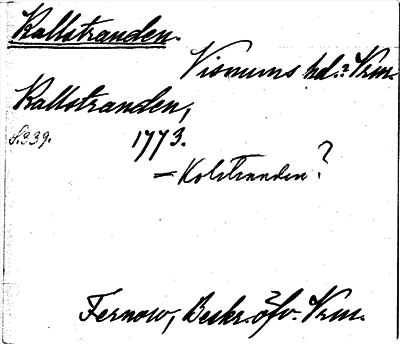 Kallstranden.
Visnums hd.? Vrm.
Kallstranden,
S. 339. 1773.
– Kolstranden?
Fernow, Beskr. öfv. Vrm.